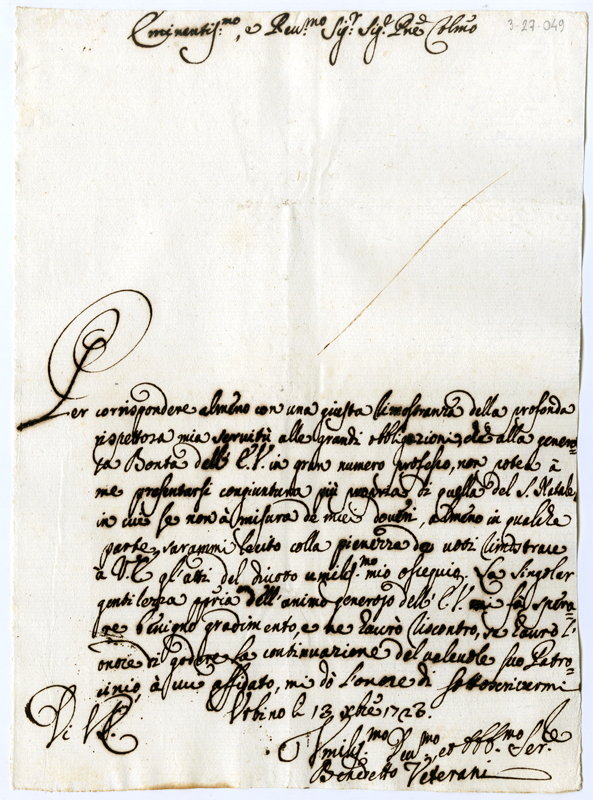 3-27-049
Eminentis:mo, e Reu:mo Sig:r Sig:r Pne Colmo
Per corrispondere almeno con una giusta dimostranza della profonda
rispettosa mia servitù alle grandi obbligazioni, che alla genero=
sa Bontà dell' E.V. in gran numero professo, non potea à
me presentarsi congiuntura più propria di quella del S. Natale,
in cui se non à misura de miei doueri, almeno in qualche
parte, sarammi lecito colla pienezza de uoti dimostrare
à V.E. gl'atti del diuoto umilis:mo mio ossequio. La singolar
gentilezza ppria dell'animo generoso dell' E.V. mi fà spera=
re benigno gradimento, e ne haurò riscontro, se haurò l'
onore di godere la continuazione del ualeuole suo Patro=
cinio, à cui affidato, mi dò l'onore di sottoscrivermi
Di V.E.
Urbino li 13 xbre 1728.
Umilis:mo Deu:mo, et Obb:mo Ser:e
Benedetto Veterani